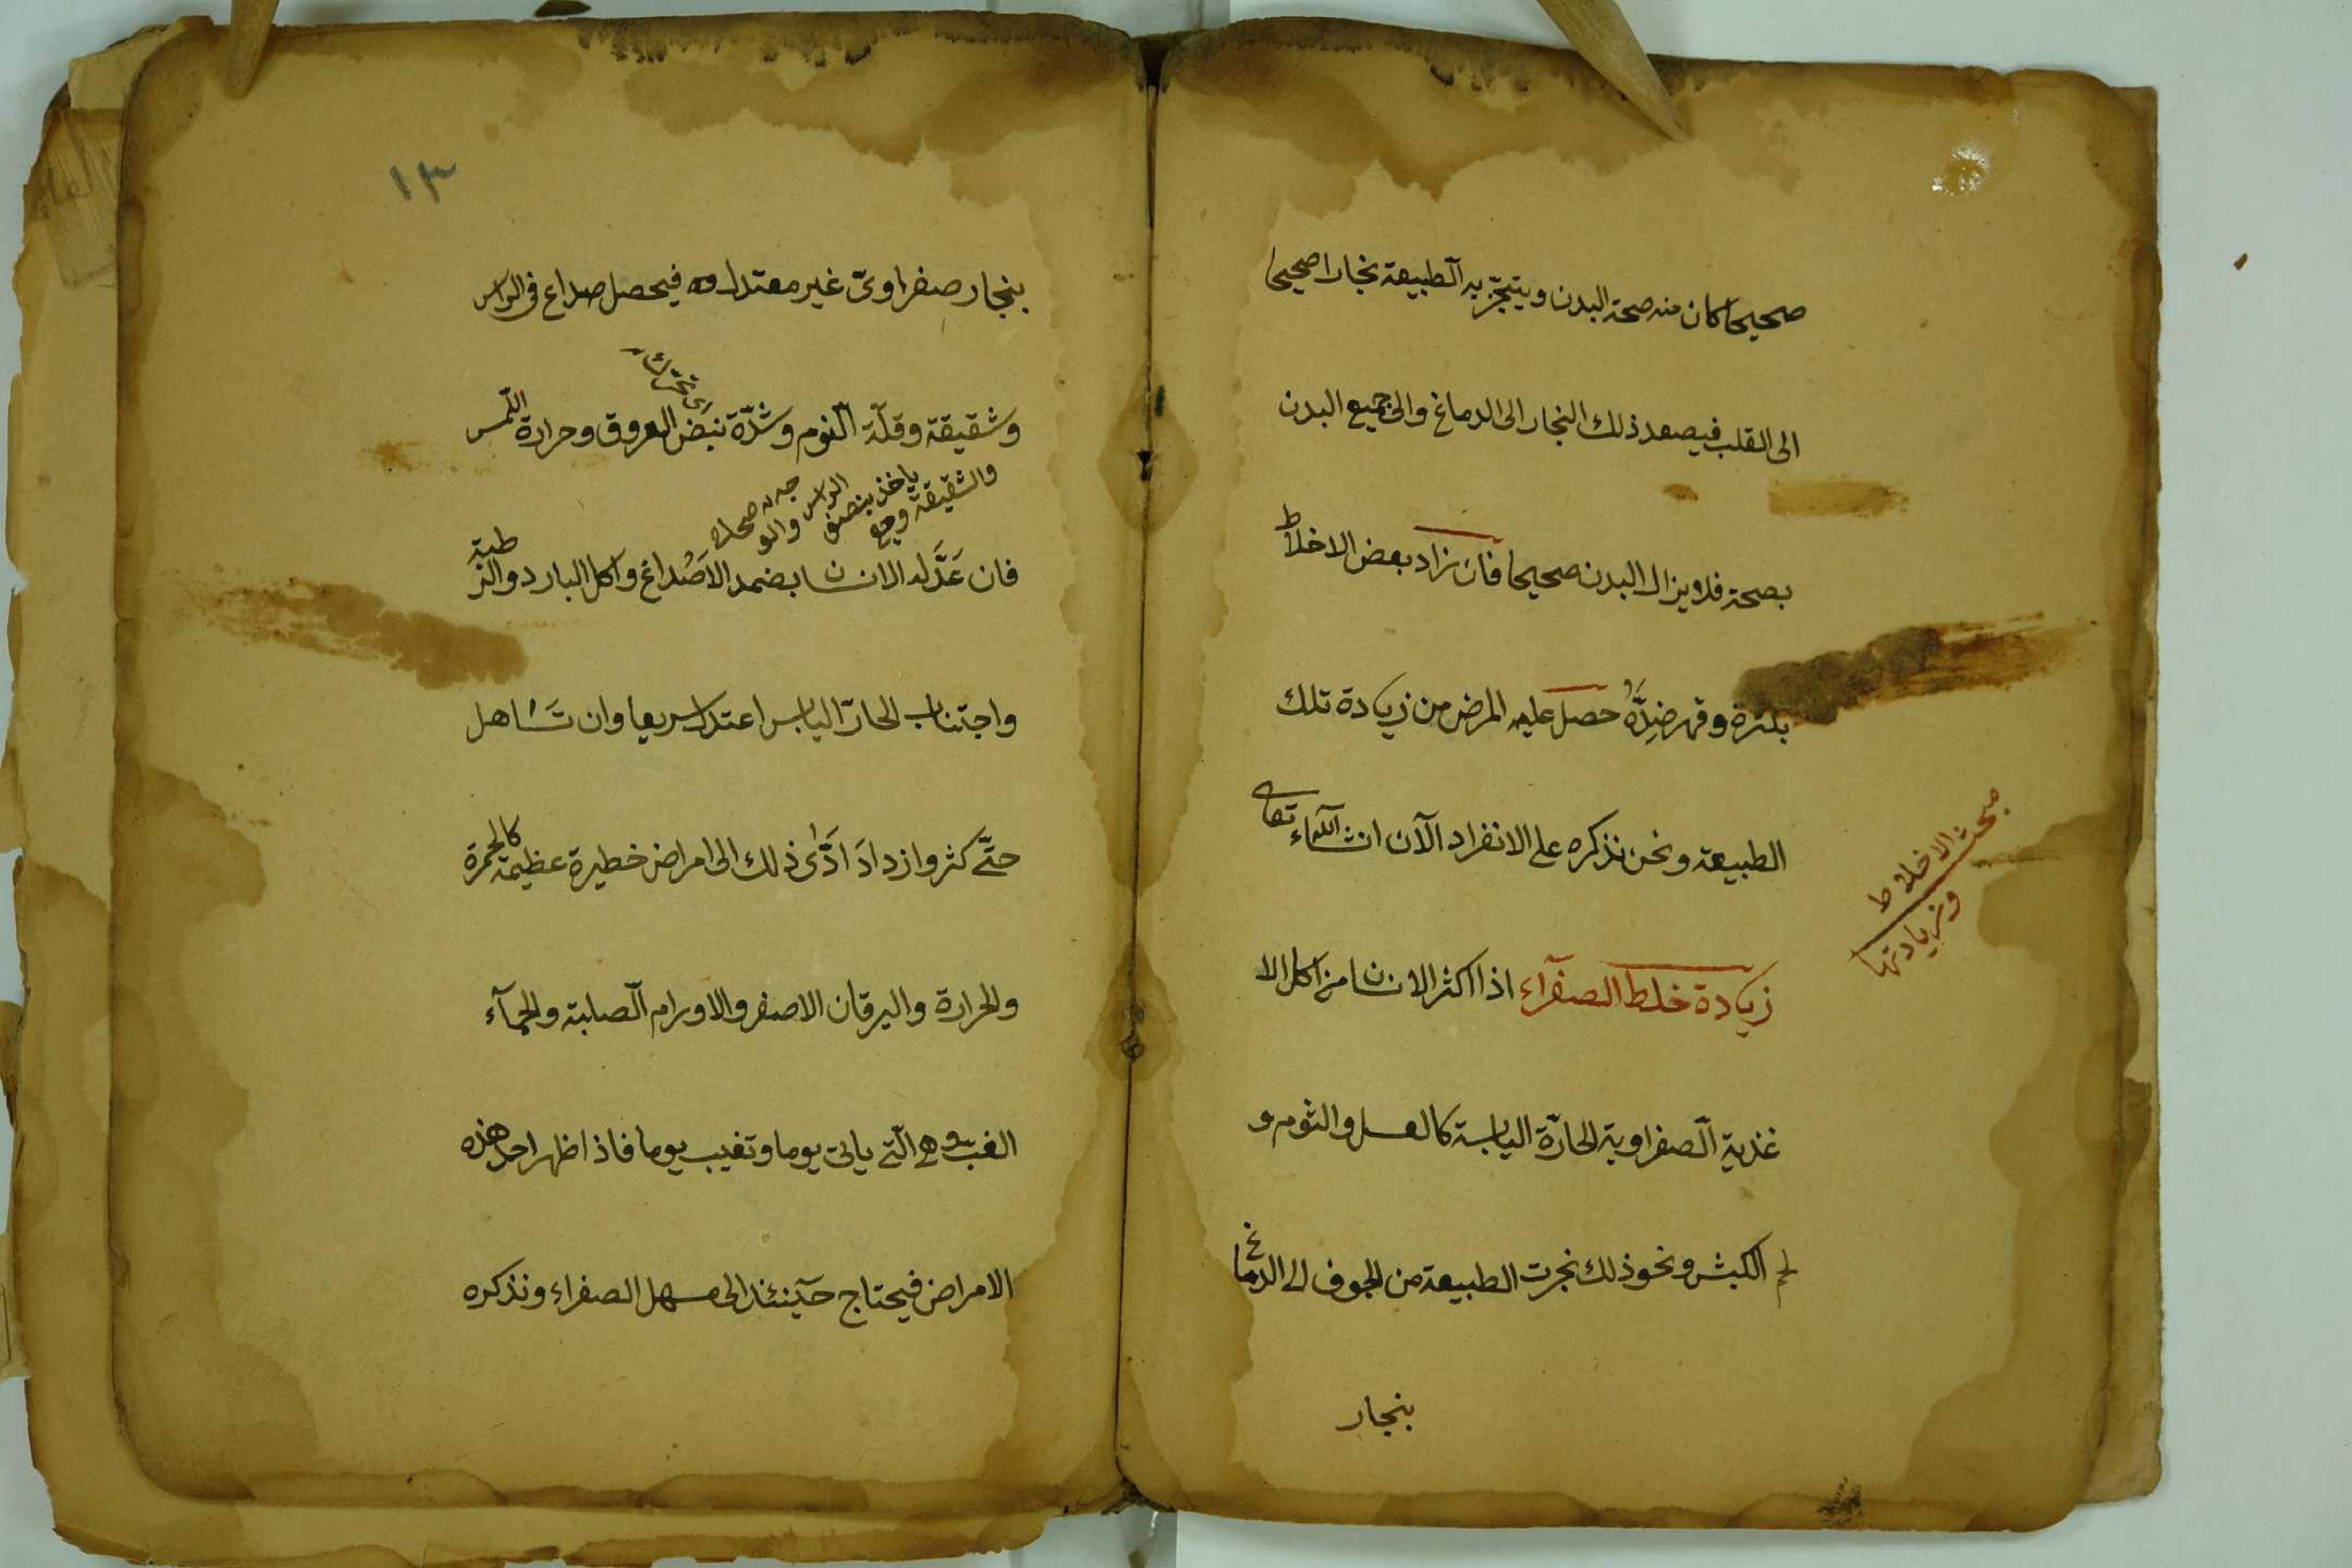 صحيحا كان منه صحة البدن ويتبخر به الطبيعة بخارا صحيحا
الى القلب فيصعد ذلك البخار الى الدماغ والى جميع البدن
بصحة فلا يزال البدن صحيحا فان زاد بعض الاخلاط
بكثرة وقهر ضِدَّهُ حصل عليه المرض من زيادة تلك
الطبيعة ونحن نذكره على الانفراد الآن انشاء الله تعالى
مبحث الاخلاط
وزيادتها
زيادة خلط الصفرآء اذا اكثر الانسان من اكل الا
غذية الصفراوية الحارّة اليابسة كالعسل والثوم و
لحم الكبش ونحو ذلك بخرت الطبيعة من الجوف الى الدماغ
بنجار
١٣
بنجار صفراوىّ غير معتدل فيحصل صداع فى الراس
وشقيقة وقلّة النوم وشدّة نبض العروق وحرارة اللمس
والشقيقة وجع ياخذ بنصف الراس والوجه
فان عَدَّله الانسان بضمد الاصُداغ واكل البارد والرطبة
واجتناب الحارّ اليابس اعتدل سريعا وان تَسَاهل
حتَّى كثر وازدادَ ادَّى ذلك الى امراض خطيرة عظيمة كالحمرة
والحرارة واليرقان الاصفر والاورام الصلبة والحمآء
الغب وهى التى ياتى يوما وتغيب يوما فاذا ظهر احد هذه
الامراض فيحتاج حينئذ الى مسهل الصفراء ونذكره